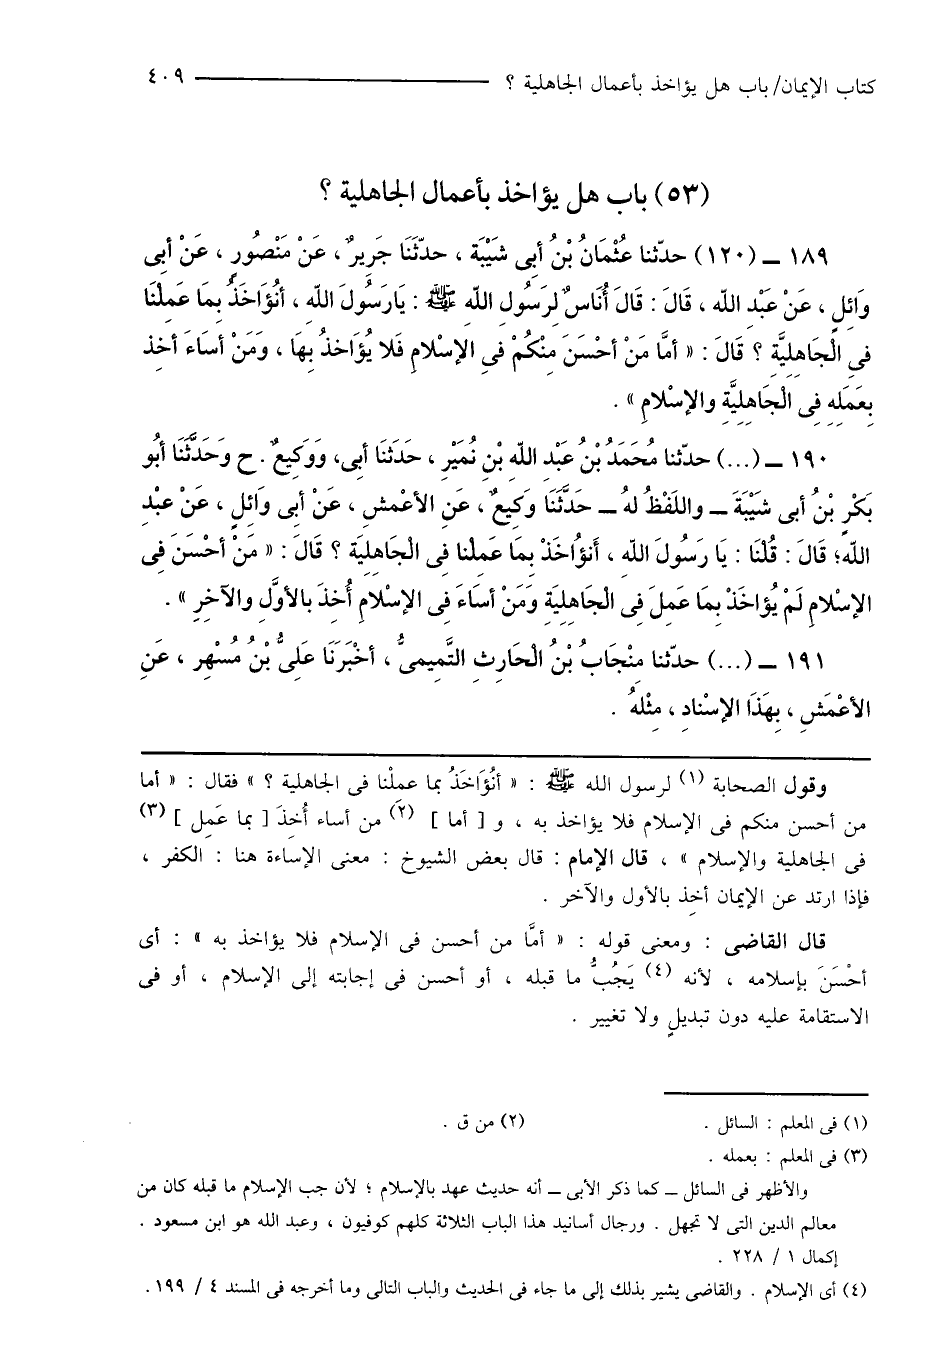 كتاب الإيمان/ باب هل يؤاخذ بأعمال الجاهلية ؟ ــــــــ ٤٠٩
(٥٣) باب هل يؤاخذ بأعمال الجاهلية ؟
١٨٩ ــ (١٢٠) حدّثنا عُثْمَانُ بْنُ أبِى شَيْبَة ، حدّثَنَا جَرِيرٌ ، عَنْ مَنْصُورٍ ، عَنْ أبِى
وَائِلٍ ، عَنْ عَبْدِ الله ، قَالَ : قَالَ أُنَاسٌ لِرَسُولِ الله ﷺ : يَارَسُولَ الله ، أنُؤَاخَذُ بِمَا عَمِلْنَا
فِى الْجَاهِليَّةِ ؟ قَالَ : « أمَّا مَنْ أحْسَنَ مِنْكُمْ فِى الإسْلامِ فَلا يُؤَاخَذُ بِهَا ، وَمَنْ أسَاءَ أخِذ
بِعَمَلِهِ فِى الْجَاهِلِيَّةِ والإسْلامِ » .
١٩٠ ــ (...) حدّثنا مُحَمَدُ بْنُ عَبْدِ اللهِ بْنِ نُمَيْرٍ ، حَدّثَنَا أبِى، وَوَكِيعٌ . ح وَحَدَّثَنَا أبُو
بَكْرِ بْنُ أبِى شَيْبَةَ ــ واللفْظُ لهُ ــ حَدَّثَنَا وَكِيعٌ ، عَنِ الأعْمشِ ، عَنْ أبِى وَائِلٍ ، عَنْ عبْدِ
اللهِ؛ قَالَ : قُلْنَا : يَا رَسُولَ الله ، أنؤُاخَذْ بِمَا عَمِلْنا فِى الجَاهِليَة ؟ قَالَ : « مَنْ أحْسَنَ فِى
الإسْلامِ لَمْ يُؤَاخَذْ بِمَا عَمِلَ فِى الْجَاهِليَةِ وَمَنْ أسَاءَ فِى الإسْلامِ أُخِذَ بالأوَّلِ والآخِرِ » .
١٩١ ــ (...) حدّثنا مِنْجَابُ بْنُ الْحَارِثِ التَّمِيمىُّ ، أخْبَرَنَا عَلىُّ بْنُ مُسْهِرٍ ، عَنِ
الأعْمَشِ ، بِهَذَا الإسْنادِ ، مِثْلهُ .
وقول الصحابة (١) لرسول الله ﷺ : « أنُؤَاخَذُ بما عملْنا فى الجاهلية ؟ » فقال : « أما
من أحسن منكم فى الإسلام فلا يؤاخذ به ، و [ أما ] (٢) من أساء أُخِذَ [ بما عَمِل ] (٣)
فى الجاهلية والإسلام » ، قال الإمام : قال بعض الشيوخ : معنى الإساءة هنا : الكفر ،
فإذا ارتد عن الإيمان أخِذ بالأول والآخر .
قال القاضى : ومعنى قوله : « أمَّا من أحسن فى الإسلام فلا يؤاخذ به » : أى
أحْسَنَ بإسلامه ، لأنه (٤) يَجُبُّ ما قبله ، أو أحسن فى إجابته إلى الإسلام ، أو فى
الاستقامة عليه دون تبديلٍ ولا تغيير .
(١) فى المعلم : السائل .   (٢) من ق .
(٣) فى المعلم : بعمله .
والأظهر فى السائل ــ كما ذكر الأبى ــ أنه حديث عهد بالإسلام ؛ لأن جب الإسلام ما قبله كان من
معالم الدين التى لا تجهل . ورجال أسانيد هذا الباب الثلاثة كلهم كوفيون ، وعبد الله هو ابن مسعود .
إكمال ١ / ٢٢٨ .
(٤) أى الإسلام . والقاضى يشير بذلك إلى ما جاء فى الحديث والباب التالى وما أخرجه فى المسند ٤ / ١٩٩ .